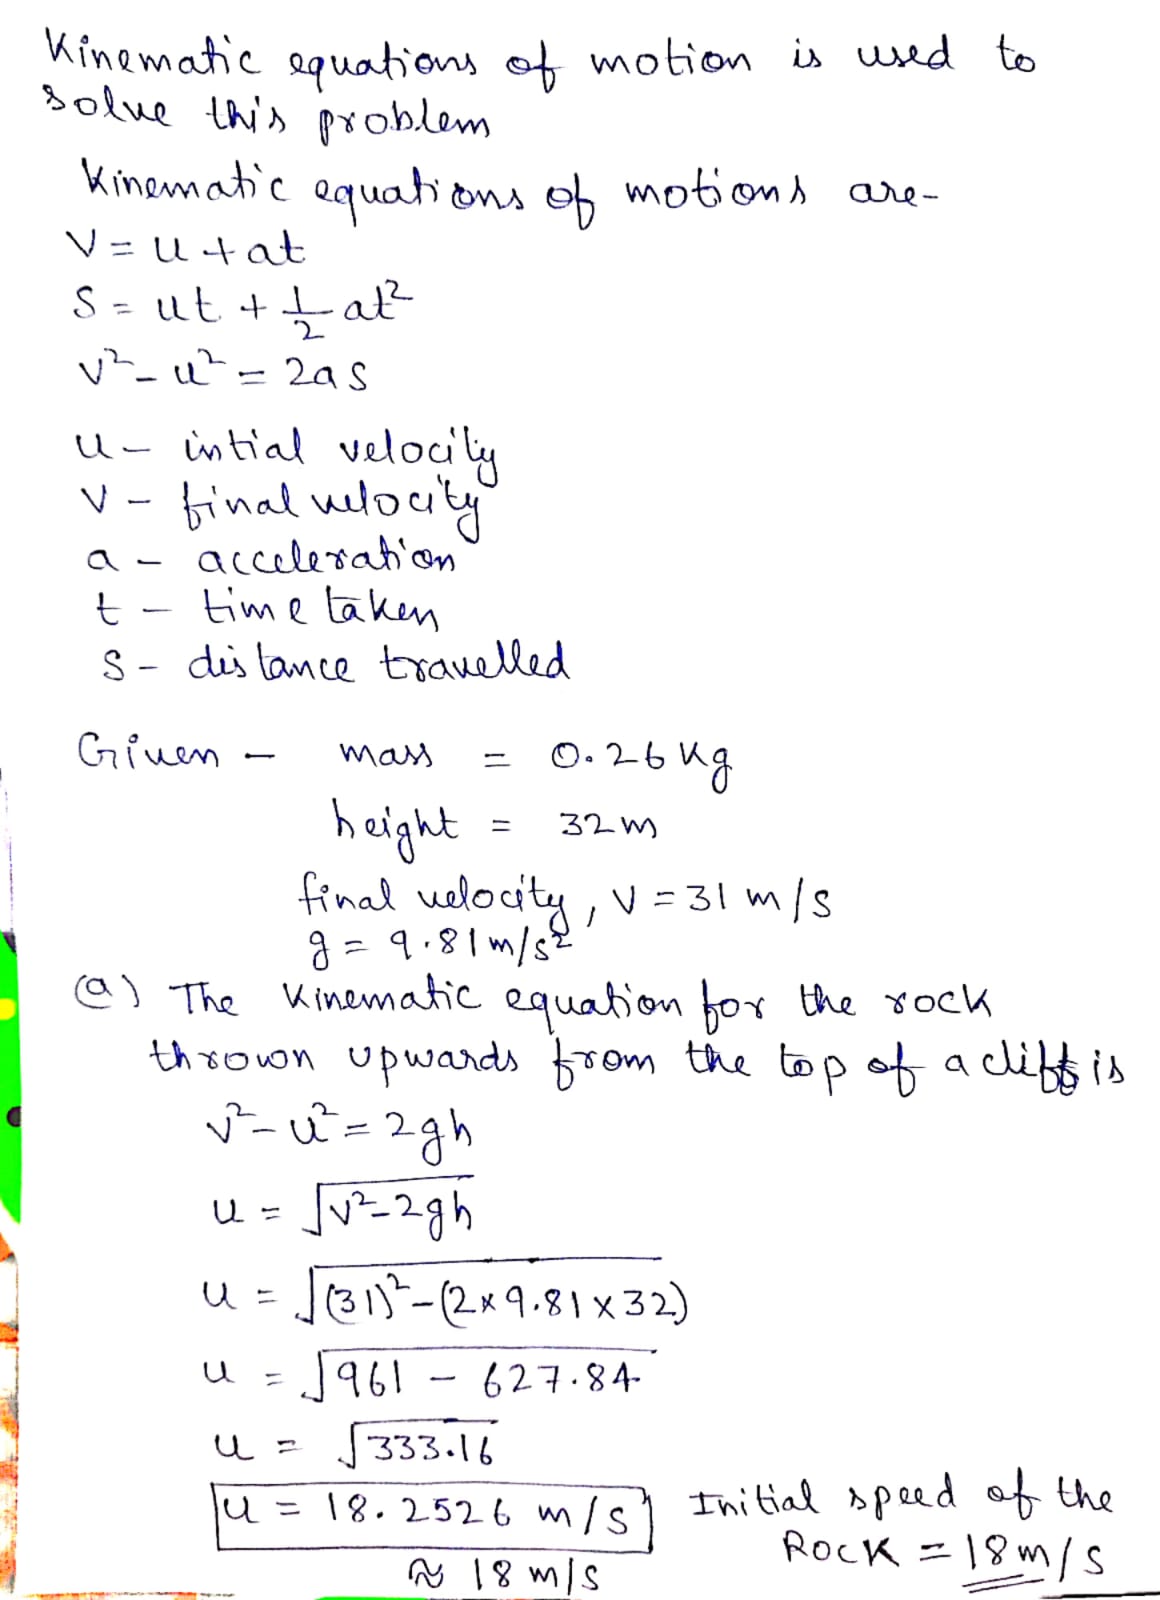 Kinematic equations of motion is used to
solve this problem
Kinematic equations of motions are-
V = u + at
S = ut + 1/2 at²
v² - u² = 2as
u - intial velocity
v - final velocity
a - acceleration
t - time taken
s - distance travelled
Given - mass = 0.26 kg
height = 32m
final velocity, v = 31 m/s
g = 9.81 m/s²
(a) The Kinematic equation for the rock
thrown upwards from the top of a cliff is
v² - u² = 2gh
u = √(v² - 2gh)
u = √((31)² - (2×9.81×32))
u = √(961 - 627.84)
u = √333.16
u = 18.2526 m/s Initial speed of the
≈ 18 m/s Rock = 18 m/s